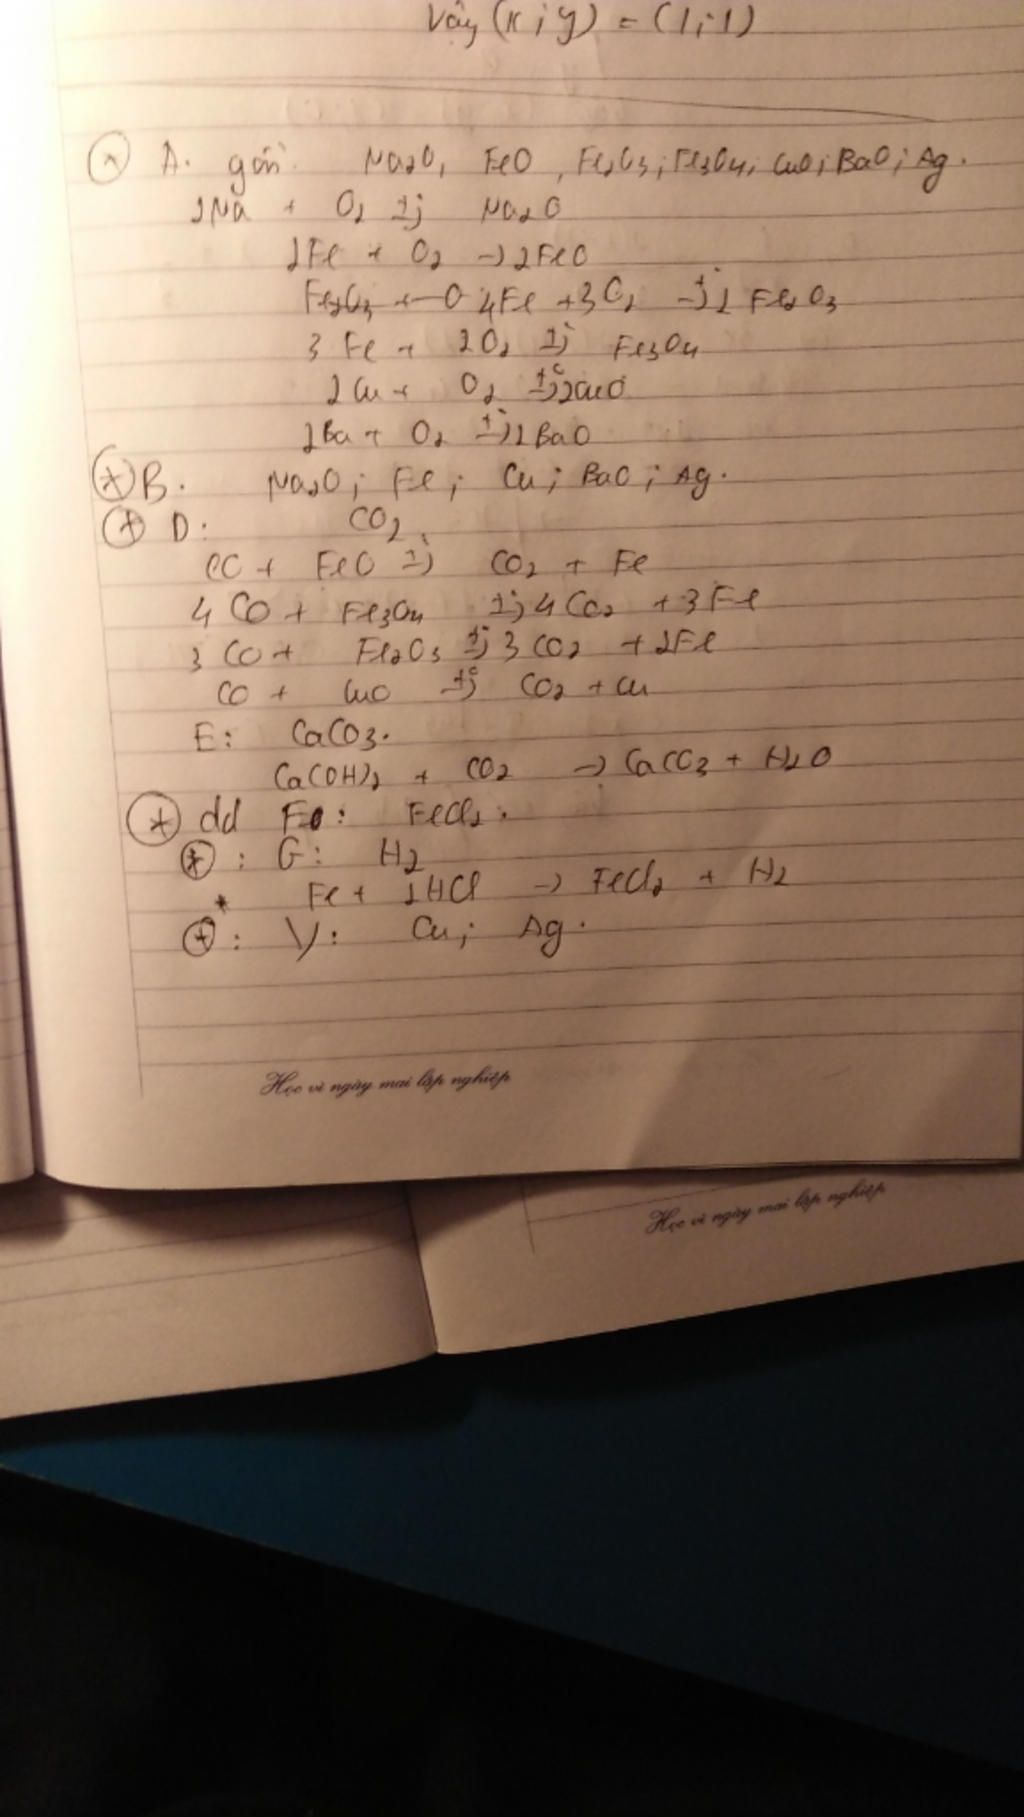 Vậy (x; y) = (1; 1)
A. gồm: Na2O, FeO, Fe2O3; Fe3O4; CuO; BaO; Ag.
2Na + O2 → Na2O
2Fe + O2 → 2FeO
Fe2O3 + O 4Fe + 3O2 → 2Fe2O3
3Fe + 2O2 → Fe3O4
2Cu + O2 →t° 2CuO
2Ba + O2 →t° 2BaO
B. Na2O; Fe; Cu; BaO; Ag.
D: CO2
CO + FeO → CO2 + Fe
4CO + Fe3O4 → 4CO2 + 3Fe
3CO + Fe2O3 →t° 3CO2 + 2Fe
CO + CuO →t° CO2 + Cu
E: CaCO3.
Ca(OH)2 + CO2 → CaCO3 + H2O
dd F: FeCl2.
: G: H2
* Fe + 2HCl → FeCl2 + H2
: V: Cu; Ag.
Học vì ngày mai lập nghiệp
Học vì ngày mai lập nghiệp